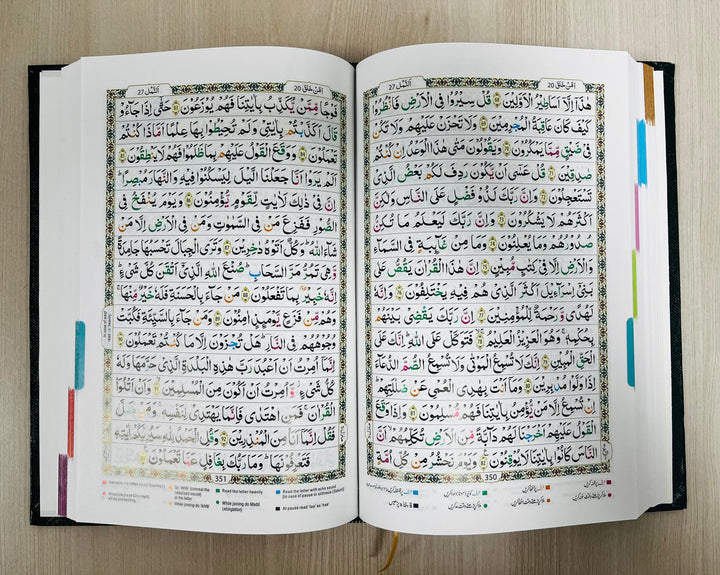 اَمَّنْ خَلَقَ 20
اَلنَّمْل 27
هٰذَاۤ اِلَّاۤ اَسَاطِيْرُ الْاَوَّلِيْنَ ﴿68﴾ قُلْ سِيْرُوْا فِى الْاَرْضِ فَانْظُرُوْا
كَيْفَ كَانَ عَاقِبَةُ الْمُجْرِمِيْنَ ﴿69﴾ وَلَا تَحْزَنْ عَلَيْهِمْ وَلَا تَكُنْ
فِىْ ضَيْقٍ مِّمَّا يَمْكُرُوْنَ ﴿70﴾ وَيَقُوْلُوْنَ مَتٰى هٰذَا الْوَعْدُ اِنْ كُنْتُمْ
صٰدِقِيْنَ ﴿71﴾ قُلْ عَسٰۤى اَنْ يَّكُوْنَ رَدِفَ لَكُمْ بَعْضُ الَّذِىْ
تَسْتَعْجِلُوْنَ ﴿72﴾ وَاِنَّ رَبَّكَ لَذُوْ فَضْلٍ عَلَى النَّاسِ وَلٰكِنَّ
اَكْثَرَهُمْ لَا يَشْكُرُوْنَ ﴿73﴾ وَاِنَّ رَبَّكَ لَيَعْلَمُ مَا تُكِنُّ
صُدُوْرُهُمْ وَمَا يُعْلِنُوْنَ ﴿74﴾ وَمَا مِنْ غَآئِبَةٍ فِى السَّمَآءِ
وَالْاَرْضِ اِلَّا فِىْ كِتٰبٍ مُّبِيْنٍ ﴿75﴾ اِنَّ هٰذَا الْقُرْاٰنَ يَقُصُّ عَلٰى
بَنِىْۤ اِسْرَآءِيْلَ اَكْثَرَ الَّذِىْ هُمْ فِيْهِ يَخْتَلِفُوْنَ ﴿76﴾ وَاِنَّهٗ
لَهُدًى وَّرَحْمَةٌ لِّلْمُؤْمِنِيْنَ ﴿77﴾ اِنَّ رَبَّكَ يَقْضِىْ بَيْنَهُمْ
بِحُكْمِهٖ ۚ وَهُوَ الْعَزِيْزُ الْعَلِيْمُ ﴿78﴾ فَتَوَكَّلْ عَلَى اللّٰهِ ؕ اِنَّكَ عَلَى
الْحَقِّ الْمُبِيْنِ ﴿79﴾ اِنَّكَ لَا تُسْمِعُ الْمَوْتٰى وَلَا تُسْمِعُ الصُّمَّ الدُّعَآءَ
اِذَا وَلَّوْا مُدْبِرِيْنَ ﴿80﴾ وَمَاۤ اَنْتَ بِهٰدِى الْعُمْىِ عَنْ ضَلٰلَتِهِمْ ؕ
اِنْ تُسْمِعُ اِلَّا مَنْ يُّؤْمِنُ بِاٰيٰتِنَا فَهُمْ مُّسْلِمُوْنَ ﴿81﴾ وَاِذَا وَقَعَ
الْقَوْلُ عَلَيْهِمْ اَخْرَجْنَا لَهُمْ دَآبَّةً مِّنَ الْاَرْضِ تُكَلِّمُهُمْ ۙ اَنَّ
النَّاسَ كَانُوْا بِاٰيٰتِنَا لَا يُوْقِنُوْنَ ﴿82﴾ وَيَوْمَ نَحْشُرُ مِنْ كُلِّ اُمَّةٍ
350
اَمَّنْ خَلَقَ 20
اَلنَّمْل 27
فَوْجًا مِّمَّنْ يُّكَذِّبُ بِاٰيٰتِنَا فَهُمْ يُوْزَعُوْنَ ﴿83﴾ حَتّٰۤى اِذَا جَآءُوْ
قَالَ اَكَذَّبْتُمْ بِاٰيٰتِىْ وَلَمْ تُحِيْطُوْا بِهَا عِلْمًا اَمَّاذَا كُنْتُمْ
تَعْمَلُوْنَ ﴿84﴾ وَوَقَعَ الْقَوْلُ عَلَيْهِمْ بِمَا ظَلَمُوْا فَهُمْ لَا يَنْطِقُوْنَ ﴿85﴾
اَلَمْ يَرَوْا اَنَّا جَعَلْنَا الَّيْلَ لِيَسْكُنُوْا فِيْهِ وَالنَّهَارَ مُبْصِرًا ؕ
اِنَّ فِىْ ذٰلِكَ لَاٰيٰتٍ لِّقَوْمٍ يُّؤْمِنُوْنَ ﴿86﴾ وَيَوْمَ يُنْفَخُ فِى
الصُّوْرِ فَفَزِعَ مَنْ فِى السَّمٰوٰتِ وَمَنْ فِى الْاَرْضِ اِلَّا مَنْ
شَآءَ اللّٰهُ ؕ وَكُلٌّ اَتَوْهُ دٰخِرِيْنَ ﴿87﴾ وَتَرَى الْجِبَالَ تَحْسَبُهَا جَامِدَةً
وَّهِىَ تَمُرُّ مَرَّ السَّحَابِ ؕ صُنْعَ اللّٰهِ الَّذِىْۤ اَتْقَنَ كُلَّ شَىْءٍ ؕ
اِنَّهٗ خَبِيْرٌۢ بِمَا تَفْعَلُوْنَ ﴿88﴾ مَنْ جَآءَ بِالْحَسَنَةِ فَلَهٗ خَيْرٌ مِّنْهَا ۚ
وَهُمْ مِّنْ فَزَعٍ يَّوْمَئِذٍ اٰمِنُوْنَ ﴿89﴾ وَمَنْ جَآءَ بِالسَّيِّئَةِ فَكُبَّتْ
وُجُوْهُهُمْ فِى النَّارِ ؕ هَلْ تُجْزَوْنَ اِلَّا مَا كُنْتُمْ تَعْمَلُوْنَ ﴿90﴾
اِنَّمَاۤ اُمِرْتُ اَنْ اَعْبُدَ رَبَّ هٰذِهِ الْبَلْدَةِ الَّذِىْ حَرَّمَهَا وَلَهٗ
كُلُّ شَىْءٍ ؗ وَّاُمِرْتُ اَنْ اَكُوْنَ مِنَ الْمُسْلِمِيْنَ ﴿91﴾ وَاَنْ اَتْلُوَا
الْقُرْاٰنَ ۚ فَمَنِ اهْتَدٰى فَاِنَّمَا يَهْتَدِىْ لِنَفْسِهٖ ۚ وَمَنْ ضَلَّ
فَقُلْ اِنَّمَاۤ اَنَا مِنَ الْمُنْذِرِيْنَ ﴿92﴾ وَقُلِ الْحَمْدُ لِلّٰهِ سَيُرِيْكُمْ اٰيٰتِهٖ
فَتَعْرِفُوْنَهَا ؕ وَمَا رَبُّكَ بِغَافِلٍ عَمَّا تَعْمَلُوْنَ ﴿93﴾
351
Read the letter heavily
Read the letter with echo sound
While joining do Madd
(elongation)